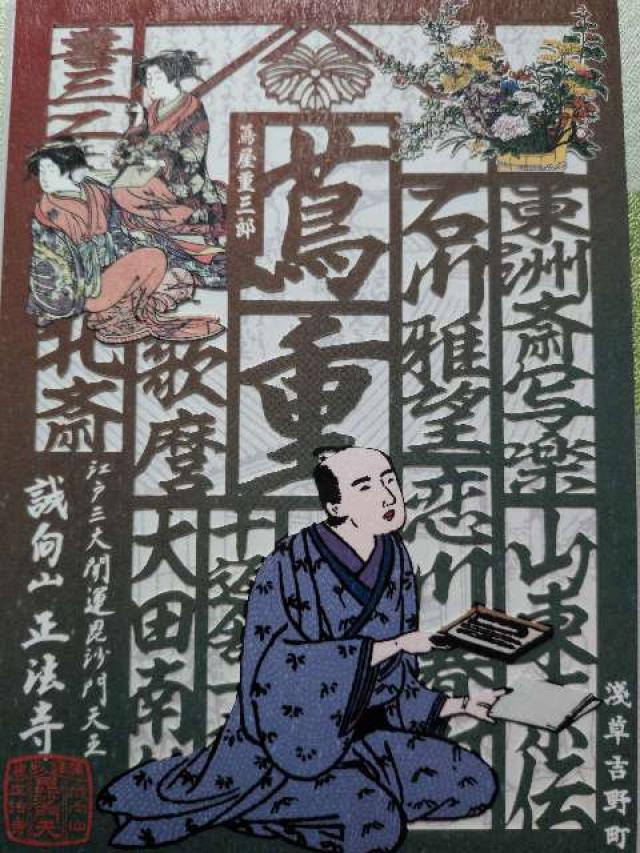 東洲斎写楽
山東京伝
浅草吉野町
石川雅望
恋川春
蔦重
蔦屋重三郎
十返舎一
歌麿
大田南
喜三二
北斎
江戸三大開運毘沙門天王
誠向山 正法寺